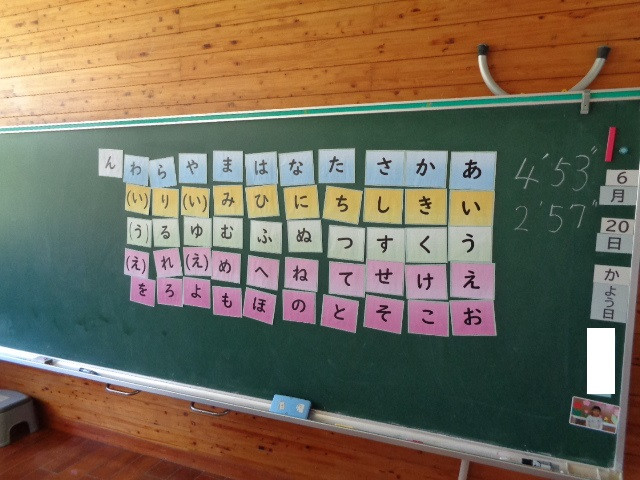 あいうえお
かきくけこ
さしすせそ
たちつてと
なにぬねの
はひふへほ
まみむめも
や(い)ゆ(え)よ
らりるれろ
わ(い)(う)(え)を
ん
4'53"
2'57"
6
月
20
日
か
よう日